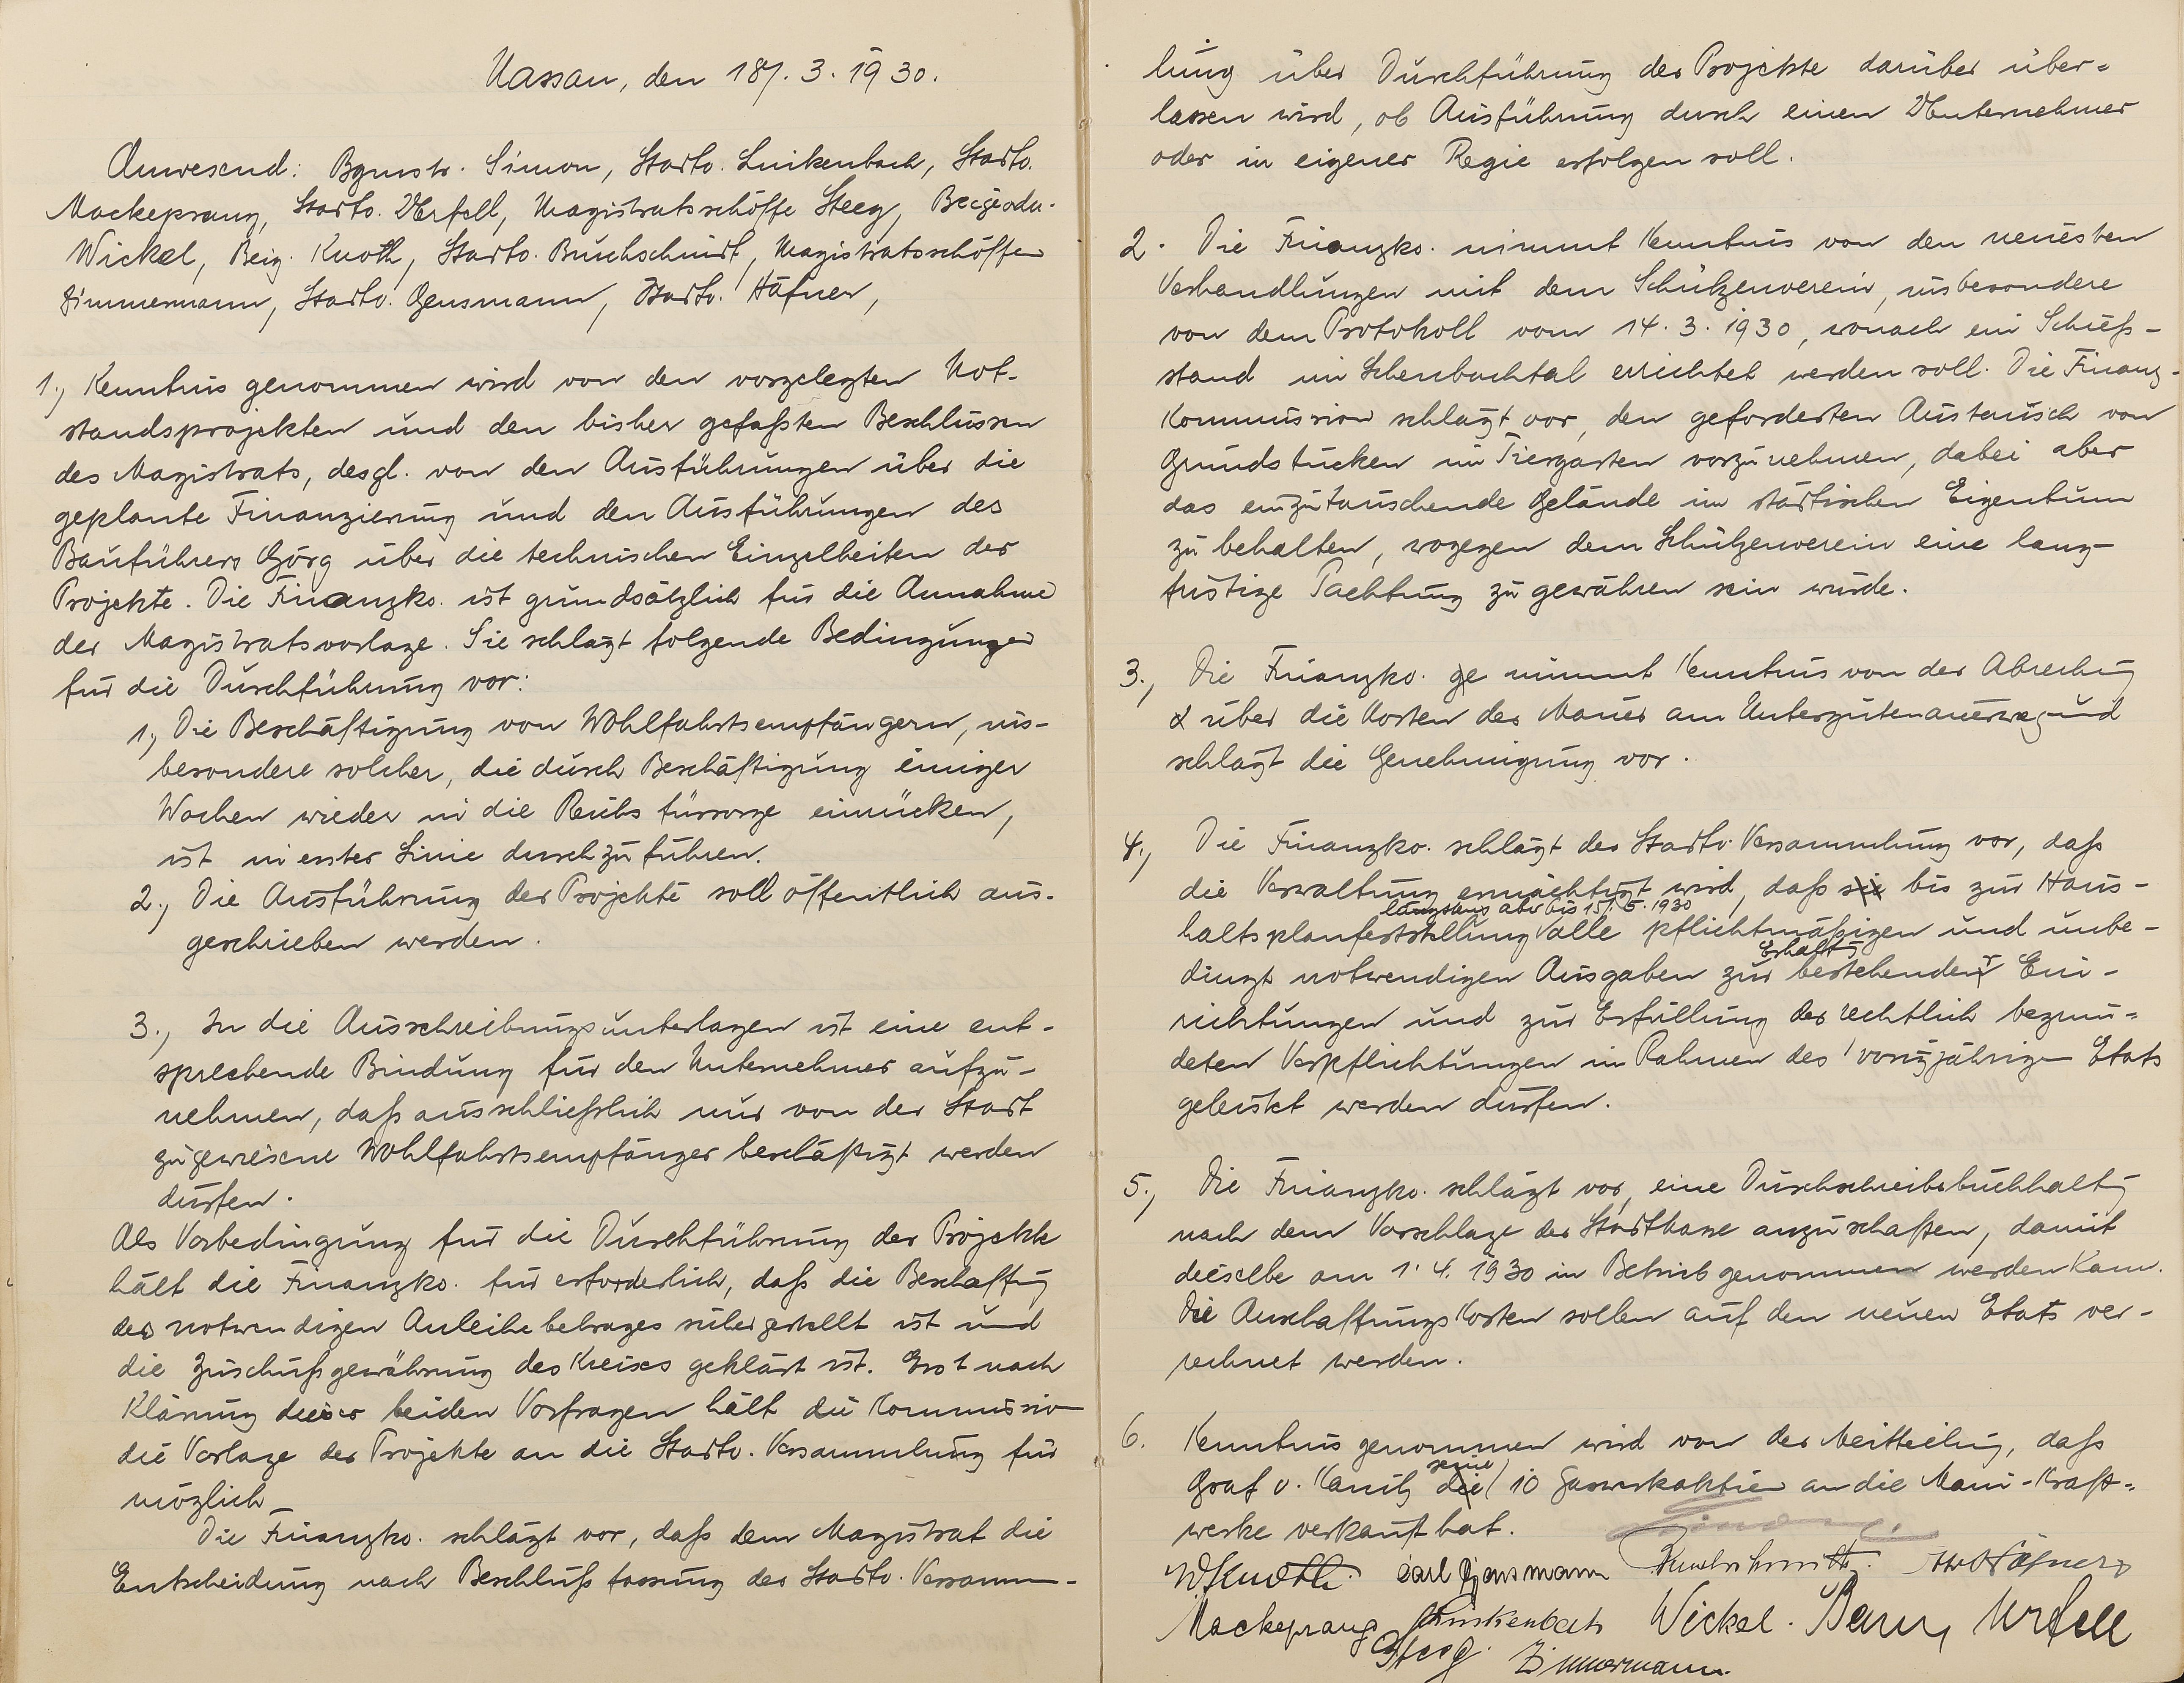 Nassau, den 18/. 3. 1930.
Anwesend: Bgmstr. Simon, Stadtv. Linkenbach, Stadtv.
Mackeprang, Stadtv. Urfell, Magistratsschöffe Steeg, Beigeodn.
Wickel, Beig. Knoth, Stadtv. Bruchschmidt, Magistratsschöffe
Zimmermann, Stadtv. Gensmann, Stadtv. Häfner,
1., Kenntnis genommen wird von den vorgelegten Not-
standsprojekten und den bisher gefaßten Beschlüssen
des Magistrats, desgl. von den Ausführungen über die
geplante Finanzierung und den Ausführungen des
Bauführers Görg über die technischen Einzelheiten der
Projekte. Die Finanzko. ist grundsätzlich für die Annahme
der Magistratsvorlage. Sie schlägt folgende Bedingungen
für die Durchführung vor:
1., Die Beschäftigung von Wohlfahrtsempfängern, ins-
besondere solcher, die durch Beschäftigung einiger
Wochen wieder in die Reichsfürsorge einrücken,
ist in erster Linie durchzuführen.
2., Die Ausführung der Projekte soll öffentlich aus-
geschrieben werden.
3., In die Ausschreibungsunterlagen ist eine ent-
sprechende Bindung für den Unternehmer aufzu-
nehmen, daß ausschließlich nur von der Stadt
zugewiesene Wohlfahrtsempfänger beschäftigt werden
dürfen.
Als Vorbedingung für die Durchführung der Projekte
hält die Finanzko. für erforderlich, daß die Beschaffung
des notwendigen Anleihebetrages sichergestellt ist und
die Zuschußgewährung des Kreises geklärt ist. Erst nach
Klärung dieser beiden Vorfragen hält die Kommission
die Vorlage der Projekte an die Stadtv. Versammlung für
möglich.
Die Finanzko. schlägt vor, daß dem Magistrat die
Entscheidung nach Beschlußfassung der Stadtv. Versamm-
lung über Durchführung der Projekte darüber über-
lassen wird, ob Ausführung durch einen Unternehmer
oder in eigener Regie erfolgen soll.
2. Die Finanzko. nimmt Kenntnis von den neuesten
Verhandlungen mit dem Schützenverein, insbesondere
von dem Protokoll vom 14. 3. 1930, wonach ein Schieß-
stand im Schenbachtal errichtet werden soll. Die Finanz-
Kommission schlägt vor, den geforderten Austausch von
Grundstücken im Tiergarten vorzunehmen, dabei aber
das einzutauschende Gelände im städtischen Eigentum
zu behalten, wogegen dem Schützenverein eine lang-
fristige Pachtung zu gewähren sein würde.
3., Die Finanzko. ge nimmt Kenntnis von der Abrechng
über die Kosten der Mauer am Untergutenauerweg und
schlägt die Genehmigung vor.
4., Die Finanzko. schlägt der Stadtv. Versammlung vor, daß
die Verwaltung ermächtigt wird, daß sie bis zur Haus-
längstens aber bis 15/. 5. 1930
haltsplanfeststellung alle pflichtmäßigen und unbe-
Erhaltg
dingt notwendigen Ausgaben zur bestehender Ein-
richtungen und zur Erfüllung der rechtlich begrün-
deten Verpflichtungen im Rahmen des vorigjährigen Etats
geleistet werden dürfen.
5., Die Finanzko. schlägt vor, eine Durchschreibebuchhaltg
nach dem Vorschlage der Stadtkasse anzuschaffen, damit
dieselbe am 1. 4. 1930 in Betrieb genommen werden kann.
Die Anschaffungskosten sollen auf den neuen Etats ver-
rechnet werden.
6. Kenntnis genommen wird von der Mitteilung, daß
seine
Graf v. Kanitz die 10 Gaswerkaktien an die Main-Kraft-
werke verkauft hat.
W Knoth. Carl Gensmann Bruchschmidt. Häfner
Mackeprang Linkenbach Wickel. Urfell
Steeg. Zimmermann.